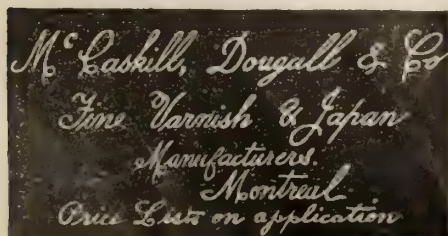 McCaskill, Dougall & Co
Fine Varnish & Japan
Manufacturers.
Montreal.
Price Lists on application